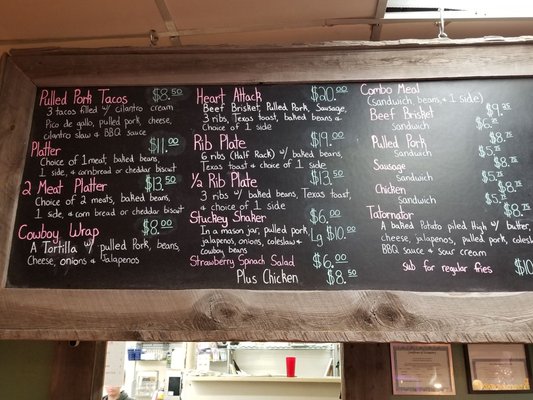 Pulled Pork Tacos $8.50
3 tacos filled w/ cilantro cream
Pico de gallo, pulled pork, cheese,
cilantro slaw & BBQ sauce
Platter $11.00
Choice of 1 meat, baked beans,
1 side, & cornbread or cheddar biscuit
2 Meat Platter $13.50
Choice of 2 meats, baked beans,
1 side, & corn bread or cheddar biscuit
Cowboy Wrap $8.00
A Tortilla w/ pulled Pork, beans,
Cheese, onions & Jalapenos
Heart Attack $20.00
Beef Brisket, Pulled Pork, Sausage,
3 ribs, Texas toast, baked beans, &
Choice of 1 side
Rib Plate $19.00
6 ribs (Half Rack) w/ baked beans,
Texas toast & choice of 1 side
1/2 Rib Plate $13.50
3 ribs w/ baked beans, Texas toast,
& choice of 1 side
Stuckey Shaker $6.00
In a mason jar, pulled pork, Lg $10.00
jalapenos, onions, coleslaw &
cowboy beans
Strawberry Spinach Salad $6.00
Plus Chicken $8.50
Combo Meal
(Sandwich, beans, & 1 side)
Beef Brisket $9.25
Sandwich $6.75
Pulled Pork $8.75
Sandwich $5.75
Sausage $8.75
Sandwich $5.75
Chicken $8.75
Sandwich $5.75
Tatornator $8.75
A baked Potato piled High w/ butter,
cheese, jalapenos, pulled pork,
BBQ sauce & sour cream
sub for regular fries $10